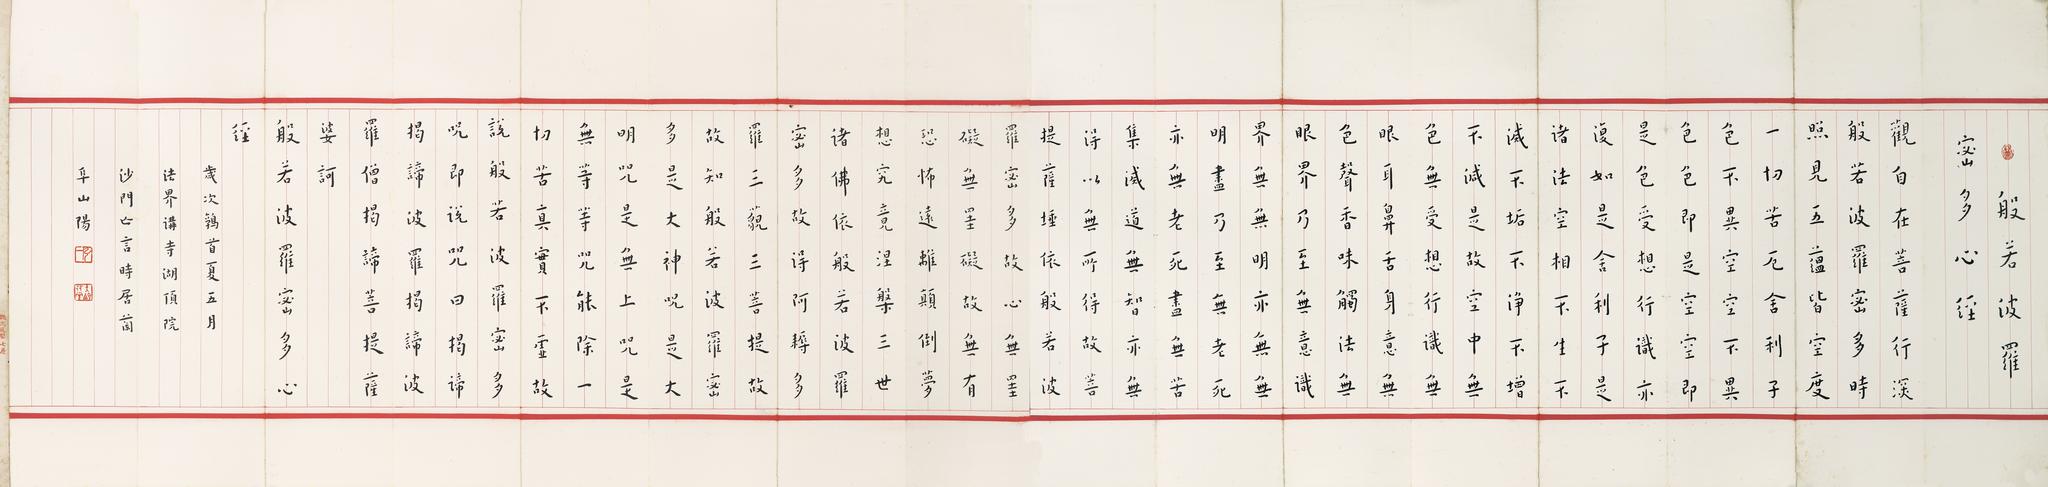 般若波羅
蜜多心經
觀自在菩薩行深
般若波羅蜜多時
照見五蘊皆空度
一切苦厄舍利子
色不異空空不異
色色即是空空即
是色受想行識亦
復如是舍利子是
諸法空相不生不
滅不垢不淨不增
不減是故空中無
色無受想行識無
眼耳鼻舌身意無
色聲香味觸法無
眼界乃至無意識
界無無明亦無無
明盡乃至無老死
亦無老死盡無苦
集滅道無智亦無
得以無所得故菩
提薩埵依般若波
羅蜜多故心無罣
礙無罣礙故無有
恐怖遠離顛倒夢
想究竟涅槃三世
諸佛依般若波羅
蜜多故得阿耨多
羅三藐三菩提故
故知般若波羅蜜
多是大神咒是大
明咒是無上咒是
無等等咒能除一
切苦真實不虛故
說般若波羅蜜多
咒即說咒曰揭諦
揭諦波羅揭諦波
羅僧揭諦菩提薩
婆訶
般若波羅蜜多心
經
歲次鶉首夏五月
法界講寺湖頂院
沙門亡言時居茵
年山陽